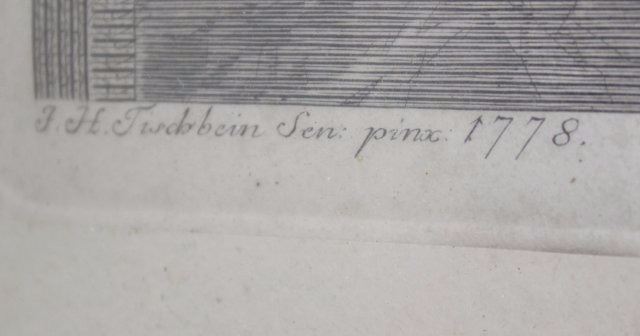 J. H. Tischbein Sen: pinx: 1778.